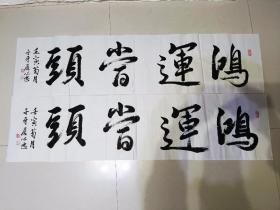 鴻運當頭
壬寅菊月
鴻運當頭
壬寅菊月